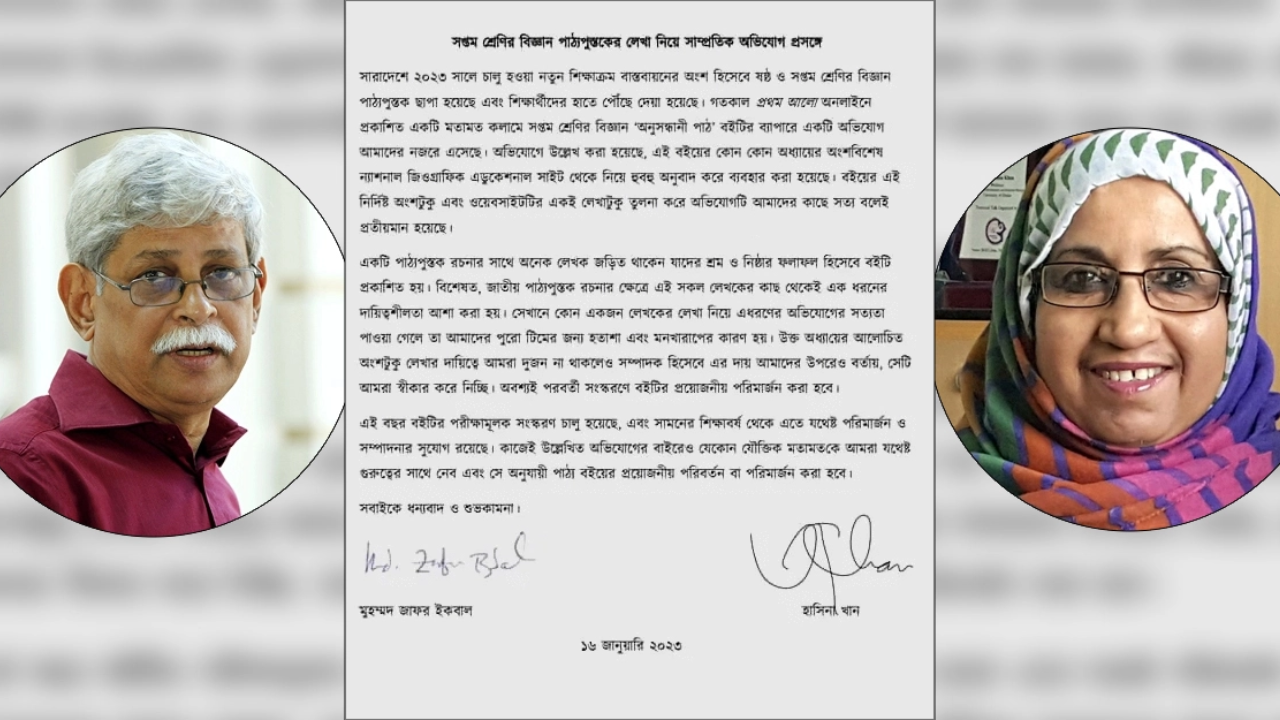 সপ্তম শ্রেণির বিজ্ঞান পাঠ্যপুস্তকের লেখা নিয়ে সাম্প্রতিক অভিযোগ প্রসঙ্গে
সারাদেশে ২০২৩ সালে চালু হওয়া নতুন শিক্ষাক্রম বাস্তবায়নের অংশ হিসেবে ষষ্ঠ ও সপ্তম শ্রেণির বিজ্ঞান
পাঠ্যপুস্তক ছাপা হয়েছে এবং শিক্ষার্থীদের হাতে পৌঁছে দেয়া হয়েছে। গতকাল প্রথম আলো অনলাইনে
প্রকাশিত একটি মতামত কলামে সপ্তম শ্রেণির বিজ্ঞান ‘অনুসন্ধানী পাঠ’ বইটির ব্যাপারে একটি অভিযোগ
আমাদের নজরে এসেছে। অভিযোগে উল্লেখ করা হয়েছে, এই বইয়ের কোন কোন অধ্যায়ের অংশবিশেষ
ন্যাশনাল জিওগ্রাফিক এডুকেশনাল সাইট থেকে নিয়ে হুবহু অনুবাদ করে ব্যবহার করা হয়েছে। বইয়ের এই
নির্দিষ্ট অংশটুকু এবং ওয়েবসাইটটির একই লেখাটুকু তুলনা করে অভিযোগটি আমাদের কাছে সত্য বলেই
প্রতীয়মান হয়েছে।
একটি পাঠ্যপুস্তক রচনার সাথে অনেক লেখক জড়িত থাকেন যাদের শ্রম ও নিষ্ঠার ফলাফল হিসেবে বইটি
প্রকাশিত হয়। বিশেষত, জাতীয় পাঠ্যপুস্তক রচনার ক্ষেত্রে এই সকল লেখকের কাছ থেকেই এক ধরনের
দায়িত্বশীলতা আশা করা হয়। সেখানে কোন একজন লেখকের লেখা নিয়ে এধরণের অভিযোগের সত্যতা
পাওয়া গেলে তা আমাদের পুরো টিমের জন্য হতাশা এবং মনখারাপের কারণ হয়। উক্ত অধ্যায়ের আলোচিত
অংশটুকু লেখার দায়িত্বে আমরা দুজন না থাকলেও সম্পাদক হিসেবে এর দায় আমাদের উপরেও বর্তায়, সেটি
আমরা স্বীকার করে নিচ্ছি। অবশ্যই পরবর্তী সংস্করণে বইটির প্রয়োজনীয় পরিমার্জন করা হবে।
এই বছর বইটির পরীক্ষামূলক সংস্করণ চালু হয়েছে, এবং সামনের শিক্ষাবর্ষ থেকে এতে যথেষ্ট পরিমার্জন ও
সম্পাদনার সুযোগ রয়েছে। কাজেই উল্লেখিত অভিযোগের বাইরেও যেকোন যৌক্তিক মতামতকে আমরা যথেষ্ট
গুরুত্বের সাথে নেব এবং সে অনুযায়ী পাঠ্য বইয়ের প্রয়োজনীয় পরিবর্তন বা পরিমার্জন করা হবে।
সবাইকে ধন্যবাদ ও শুভকামনা।
মুহম্মদ জাফর ইকবাল
হাসিনা খান
১৬ জানুয়ারি ২০২৩